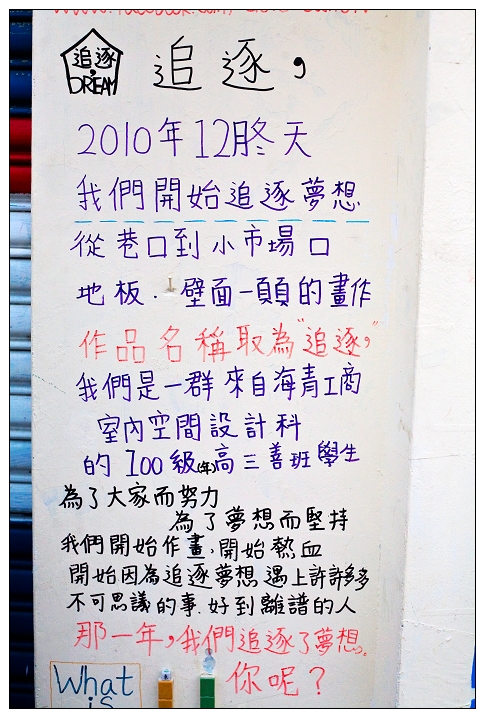 追逐,
DREAM
追逐,
2010年12月冬天
我們開始追逐夢想
從巷口到小市場口
地板．壁面一頁頁的畫作
作品名稱取為"追逐,"
我們是一群來自海青工商
室內空間設計科
的100級(年)高三善班學生
為了大家而努力
為了夢想而堅持
我們開始作畫,開始熱血
開始因為追逐夢想遇上許許多多
不可思議的事.好到離譜的人
那一年,我們追逐了夢想。
你呢？
What
is